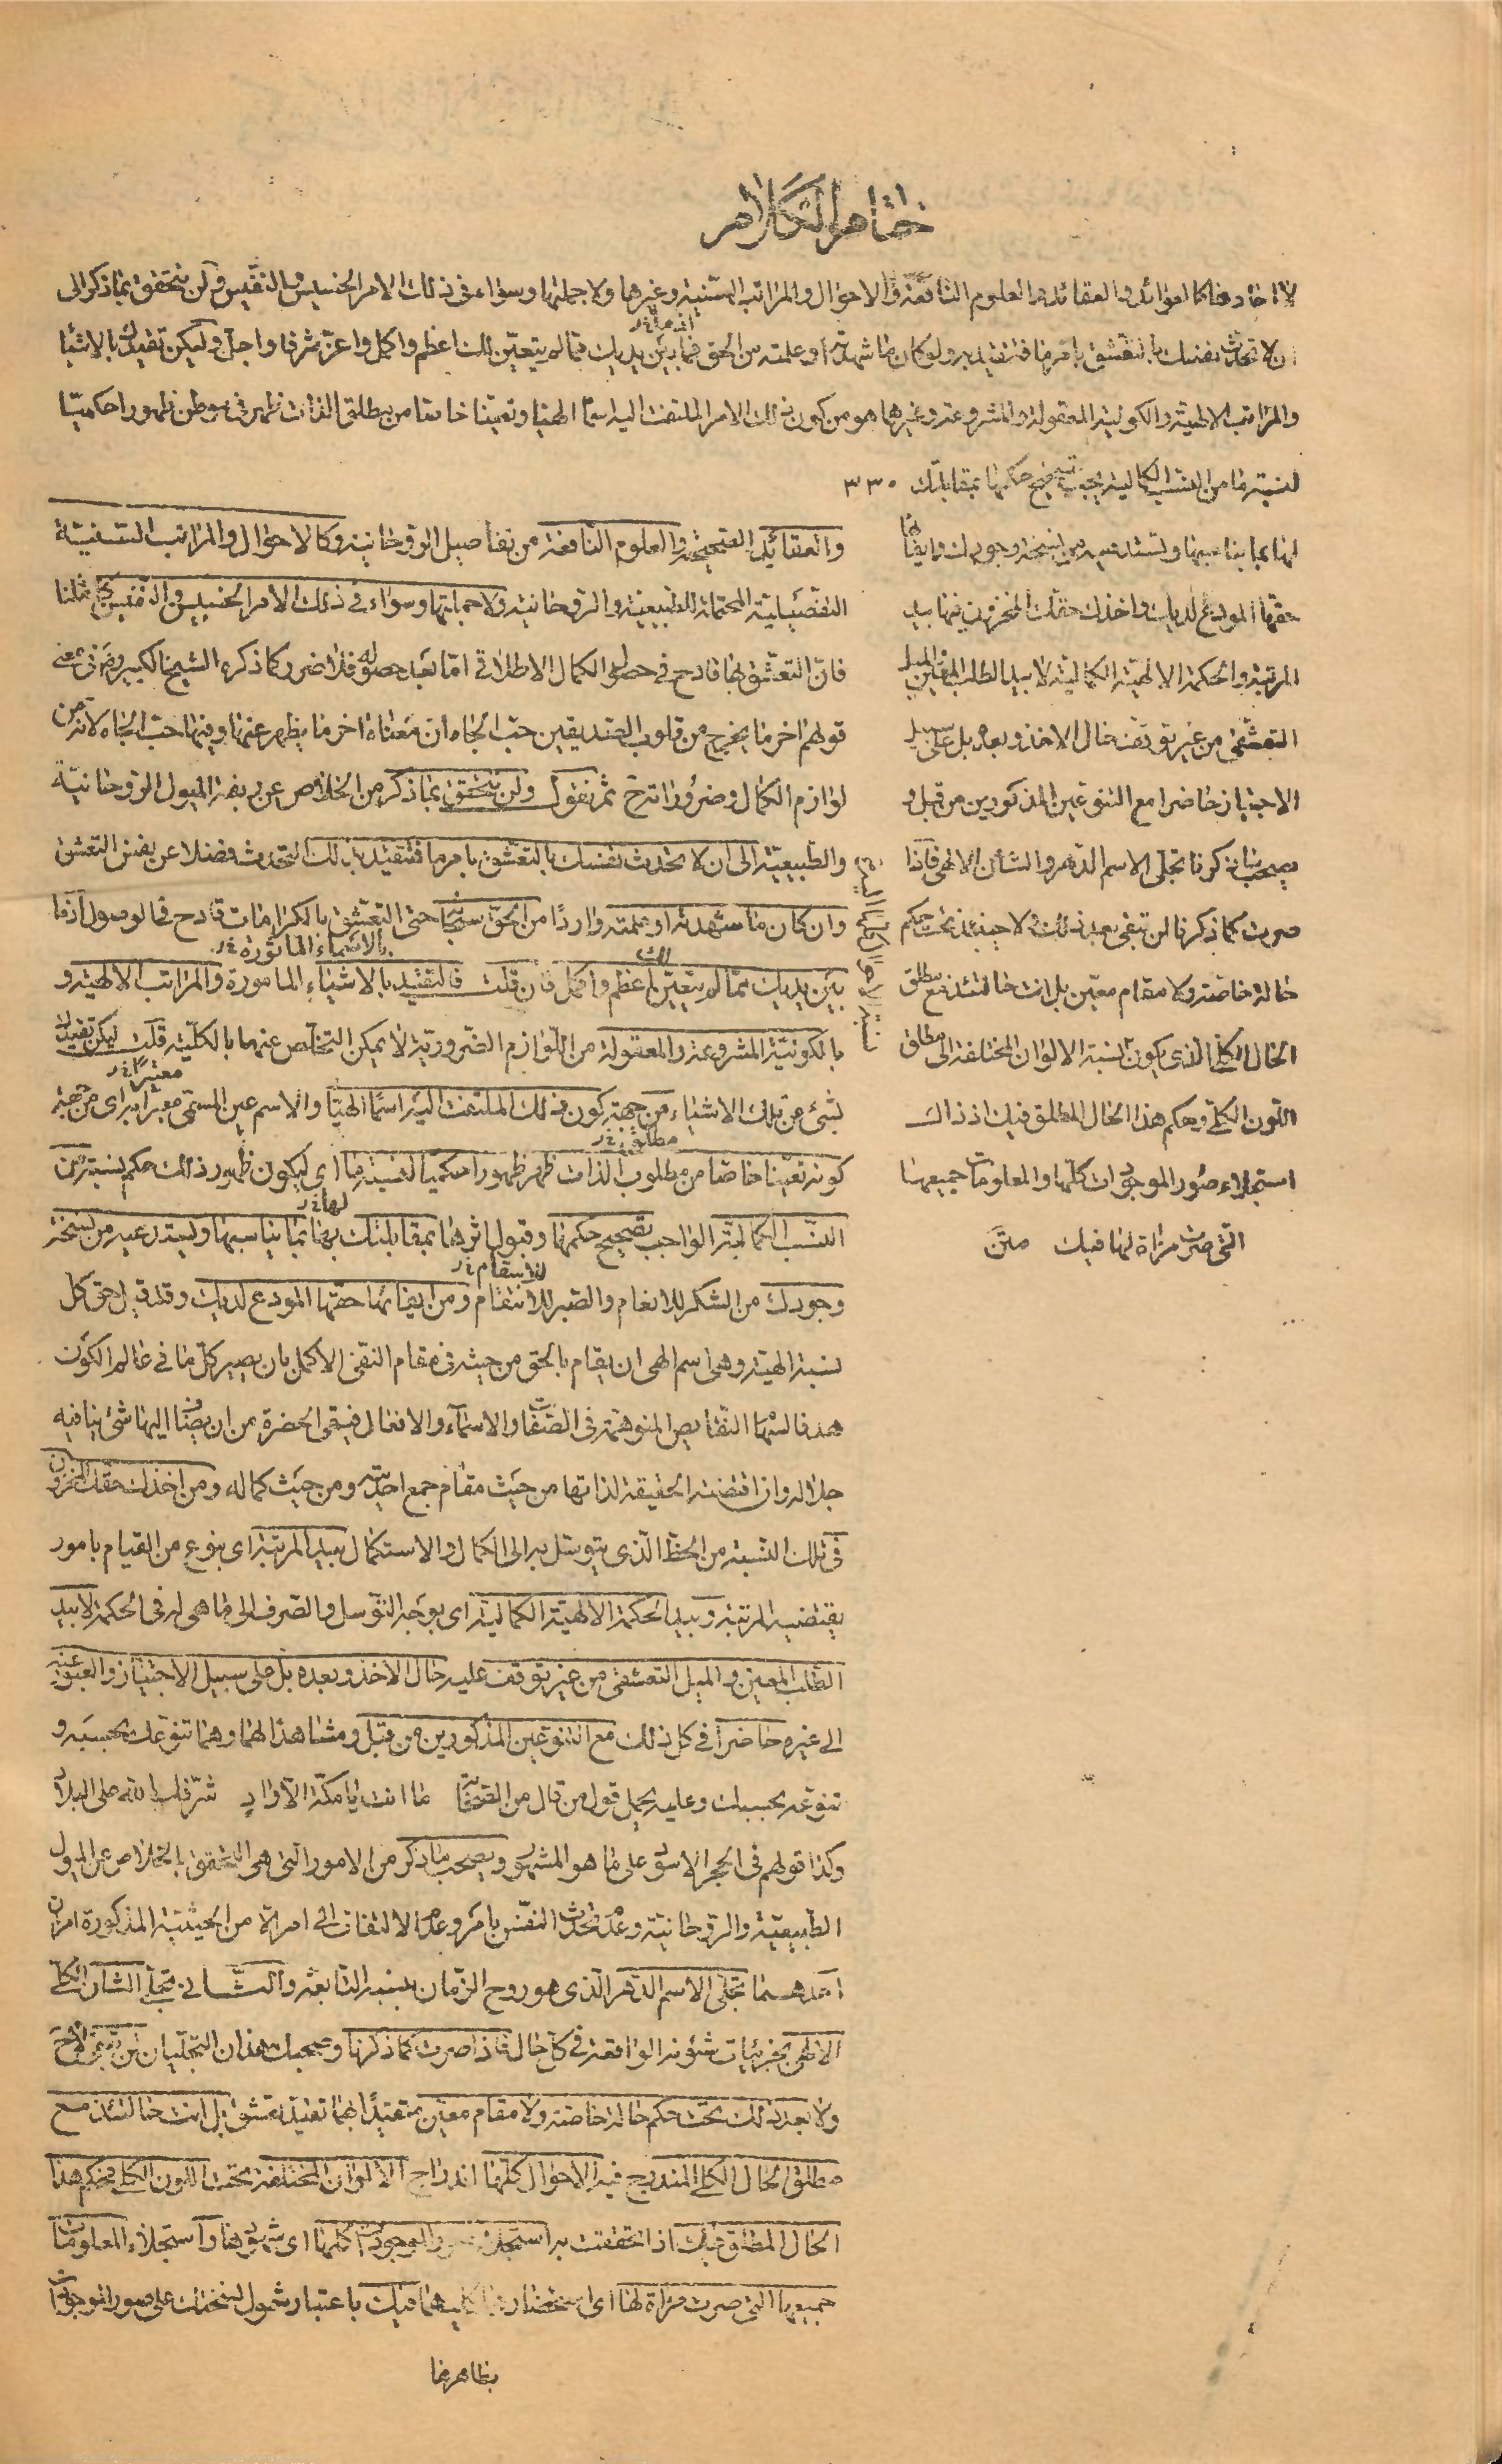 ختام الكلام
لا احادها كالعوائد والعقائد والعلوم النافعة والاحوال والمراتب السنية وغيرها ولا جملتها وسواء في ذلك الامر الخسيس والنفيس ولن يتحقق بما ذكر الى
ان لا تحدث نفسك بالتعشق بامر ما فتتقيد به ولو كان ما شهدته او علمته من الحق فما بين يديك مما لم يتعين لك اعظم واكمل واعز شرفا واجل وليكن تقيدك بالاشياء
والمراتب الالهية والكونية المعقولة والمشروعة وغيرها هو من كون ذلك الامر الملتفت اليه اسما الهيا وتعينا خاصا من مطلق الذات ظهر في موطن ظهورا حكميا
لنسبة ما من النسب الكمالية يجب تصحيح حكمها بمقابلتك ٣٣٠
لها بما يناسبها وتستدعيه من نسخة وجودك وايفائها
حقها المودع لديك واخذك حقك المخزون فيها بيد
المرتبة والحكمة الالهية الكمالية لا بيد الطلب المعين الميل
التعشقي من غير توقف حال الاخذ وبعده بل على سبيل
الاجتياز حاضرا مع التنوعين المذكورين من قبل و
يصحب ما ذكرنا تجلي الاسم الدهر والشأن الالهي فاذا
صرت كما ذكرنا لن تبقى بعد ذلك ولا حينئذ تحت حكم
حالة خاصة ولا مقام معين بل انت حالتئذ مع مطلق
الحال الكلي الذي يكون نسبة الالوان المختلفة الى مطلق
اللون الكلي وحكم هذا الحال المطلق فيك اذ ذاك
استجلاء صور الموجودات كلها والمعلومات جميعها
التي صرت مرآة لها فيك متن
والعقائد الصحيحة والعلوم النافعة من تفاصيل الروحانية وكالاحوال والمراتب السنية
التفصيلية المحتملة الطبيعية والروحانية ولا جملتها وسواء في ذلك الامر الخسيس والنفيس
فان التعشق بها قادح في حصول الكمال الاطلاقي اما بعد حصوله فلا ضرر كما ذكره الشيخ الكبير في معنى
قولهم اخر ما يخرج من قلوب الصديقين حب الجاه ان معناه اخر ما يظهر عنها وفيها حب الجاه لانه من
لوازم الكمال وضروراته ثم نقول ولن يتحقق بما ذكر من الخلاص عن ربقة الميول الروحانية
والطبيعية الى ان لا تحدث نفسك بالتعشق بامر ما فتتقيد بذلك التحدث فضلا عن نفس التعشق
وان كان ما شهدته او علمته واردا من الحق سبحانه حتى التعشق بالكرامات قادح في الوصول اذ ما
بالاسماء الماثورة
بين يديك مما لم يتعين لك اعظم واكمل فان قلت فالتقيد بالاشياء المامورة والمراتب الالهية و
بالكونية المشروعة والمعقولة من اللوازم الضرورية لا يمكن التخلص عنها بالكلية قلت ليكن تقيدك
بشئ من تلك الاشياء من جهة كون ذلك الملتفت اليه اسما الهيا والاسم عين المسمى معبرا به اي من جهة
كونه تعينا خاصا من مطلوب الذات ظهر ظهورا حكميا لنسبة ما اي ليكون ظهور ذلك حكم نسبة من
النسب الكمالية الواجب تصحيح حكمها وقبول اثرها بمقابلتك بها بما يناسبها ويستدعيه من نسخة
وجودك من الشكر للانعام والصبر للانتقام ومن ايفائها حقها المودع لديك وقد قيل حق كل
نسبة الهية وهي اسم الهي ان يقام بالحق من حيثه في مقام النقي الاكمل بان يصير كل ما في عالم الكون
هدفا لسهام النقايص المتوهمة في الصفات والاسماء والافعال فيقي الحضرة من ان يضاف اليها شئ ينافيه
جلاله وان اقتضته الحقيقة لذاتها من حيث مقام جمع احديته ومن حيث كماله ومن اخذك حقك المخزون
في تلك النسبة من الحظ الذي يتوسل به الى الكمال والاستكمال بيد المرتبة اي بنوع من القيام بامور
يقتضيه المرتبة وبيد الحكمة الالهية الكمالية اي بوجه التوسل والصرف الى ما هي له في الحكمة لا بيد
الطلب المعين والميل التعشقي من غير توقف عليه حال الاخذ وبعده بل على سبيل الاجتياز والعبور عنه
الى غيره حاضرا في كل ذلك مع التنوعين المذكورين من قبل ومشاهدا لهما وهما تنوعك بحسبه و
تنوعه بحسبك وعليه يحمل قول من قال من الصحابة ما انت يا مكة الا واد شرفك الله على البلاد
وكذا قولهم في الحجر الاسود على ما هو المشهور ويصحب ما ذكر من الامور التي هي التحقق بالخلاص عن الميول
الطبيعية والروحانية وعدم تحدث النفس بامر وعدم الالتفات الى امر الا من الحيثية المذكورة امران
احدهما تجلي الاسم الدهر الذي هو روح الزمان بنسبه التابعة والثاني تجلي الشان الكلي
الالهي بجزئيات شئونه الواقعة في كل حال فاذا صرت كما ذكرنا وصحبك هذان التجليان لن تبقى
ولا بعد ذلك تحت حكم حالة خاصة ولا مقام معين متقيدا بهما تقيد تعشق بل انت حالتئذ مع
مطلق الحال الكلي المندرج فيه الاحوال كلها اندراج الالوان المختلفة تحت اللون الكلي فحكم هذا
الحال المطلق فيك اذا تحققت به استجلاء صور الموجودات كلها اي شهودها واستجلاء المعلومات
جميعها التي صرت مرآة لها اي استحضار كليهما فيك باعتبار شمول نسختك على صور الموجودات
بظاهرها